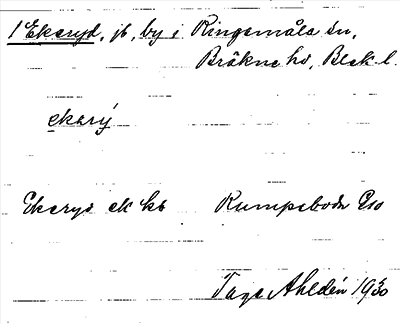 1 Ekeryd, jb, by i Ringamåla sn,
Bräkne hd, Blek l.
ekerý
Ekeryd ek kb Rumpeboda Gso
Tage Ahldén 1930